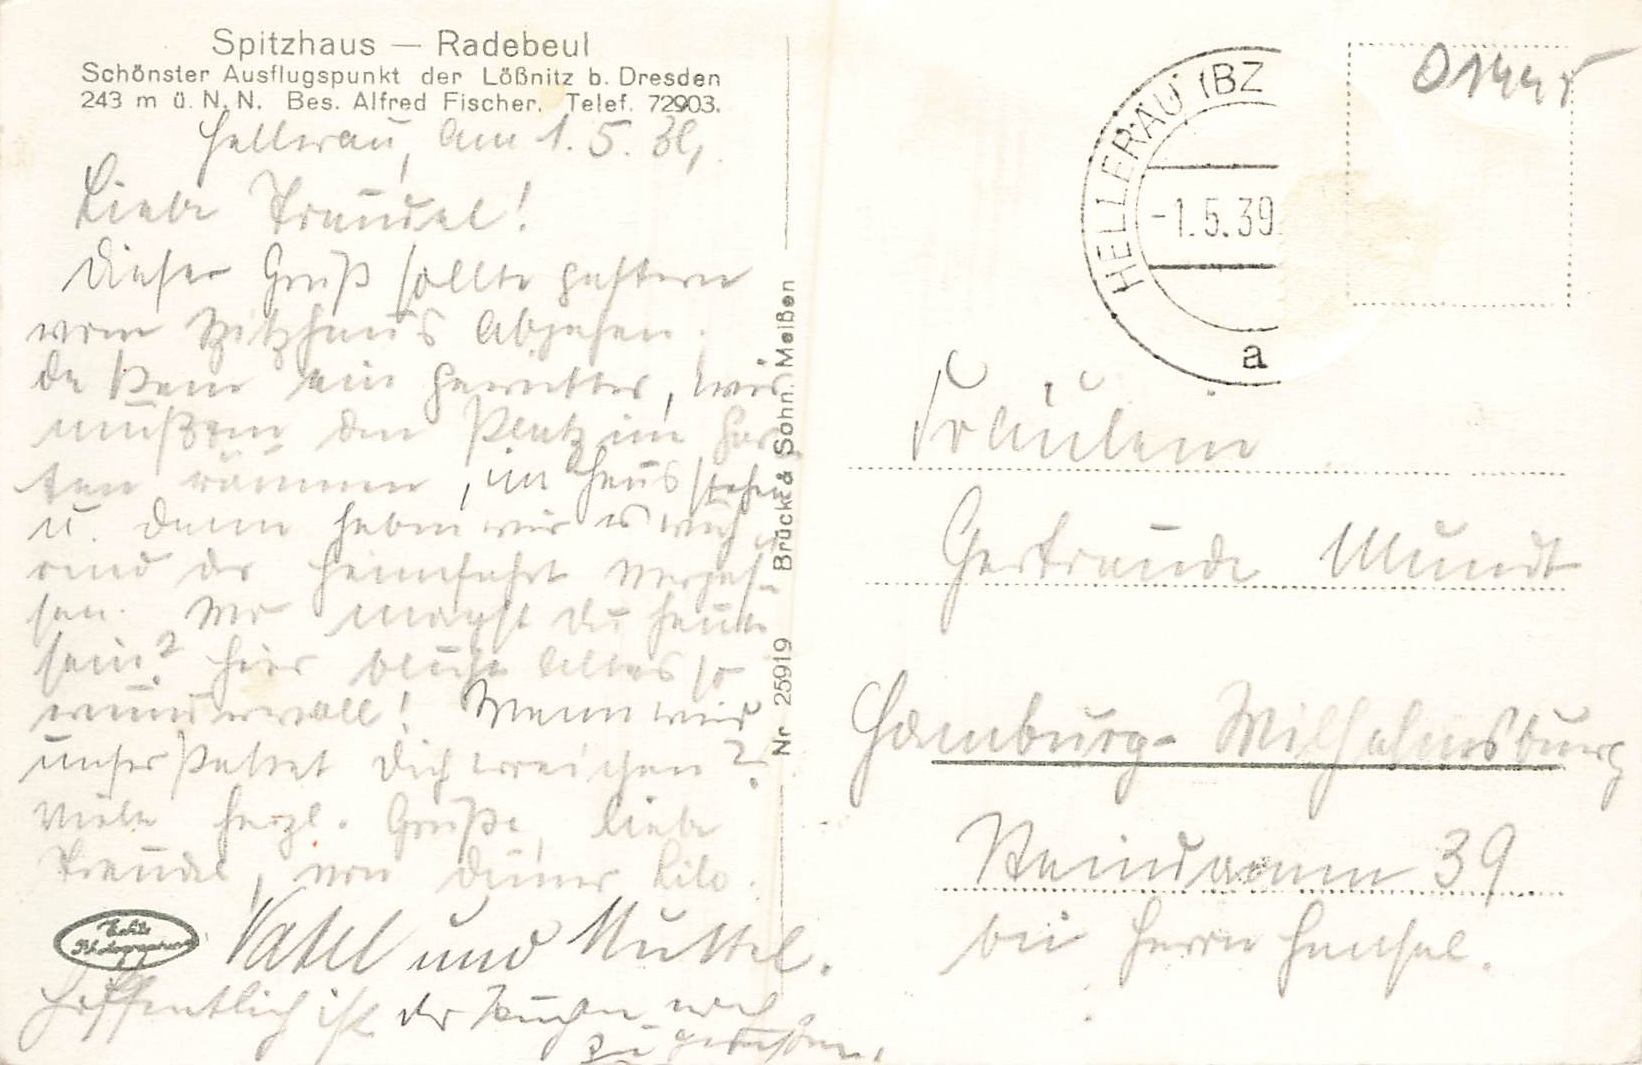 Spitzhaus — Radebeul
Schönster Ausflugspunkt der Lößnitz b. Dresden
243 m ü. N. N. Bes. Alfred Fischer. Telef. 72903.
Hellerau, am 1. 5. 39.
Liebe Traudel!
Dieser Gruß sollte gestern
vom Spitzhaus abgehen.
da kam ein Gewitter, wir
mußten den Platz im Gar-
ten räumen, im Haus stehen
u. dann haben wir es wäh-
rend der Heimfahrt verges-
sen. Wo magst du heute
sein? Hier blüht alles so
wundervoll! Wann wird
unser Paket Dich erreichen?
Viele herzl. Grüße, liebe
Traudel, von deiner Lilo.
Vatel und Muttel.
Hoffentlich ist der Kuchen noch
zu genießen.
Echte
Photographie
Nr 25919 Brück & Sohn. Meißen
HELLERAU (BZ
-1.5.39
a
01445
Fräulein
Gertraude Mundt
Hamburg-Wilhelmsburg
Reindamm 39
bei Herrn Hensel.